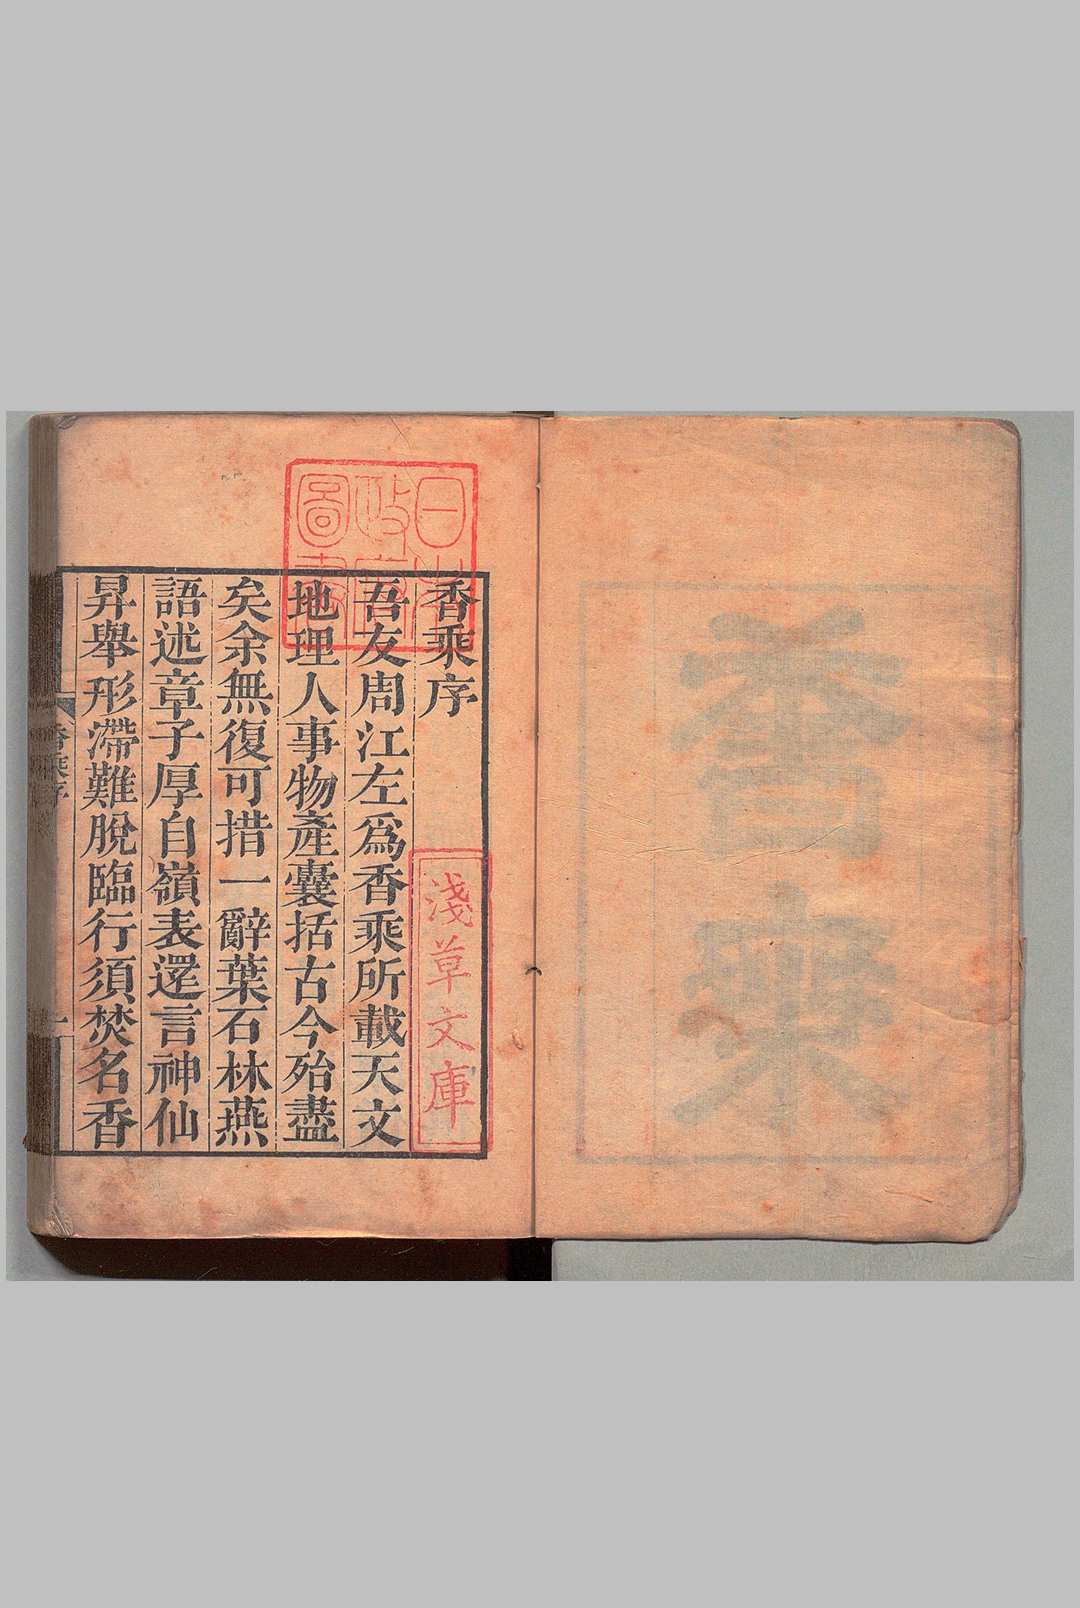 香乘
香乘序
吾友周江左爲香乘所載天文
地理人事物產囊括古今殆盡
矣余無復可措一辭葉石林燕
語述章子厚自嶺表還言神仙
昇舉形滯難脫臨行須焚名香
香乘序
一
日本
政府
圖書
淺草文庫